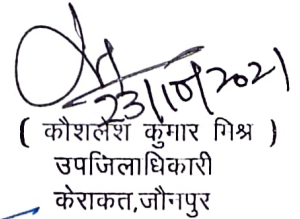 23/10/2021
( कौशलेश कुमार मिश्र )
उपजिलाधिकारी
केराकत,जौनपुर